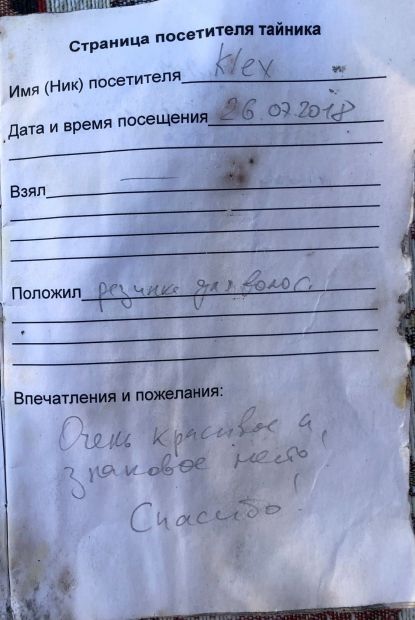 Страница посетителя тайника
Имя (Ник) посетителя klex
Дата и время посещения 26.07.2018
Взял —
Положил резинка для волос.
Впечатления и пожелания:
Очень красивое и
знаковое место!
Спасибо!